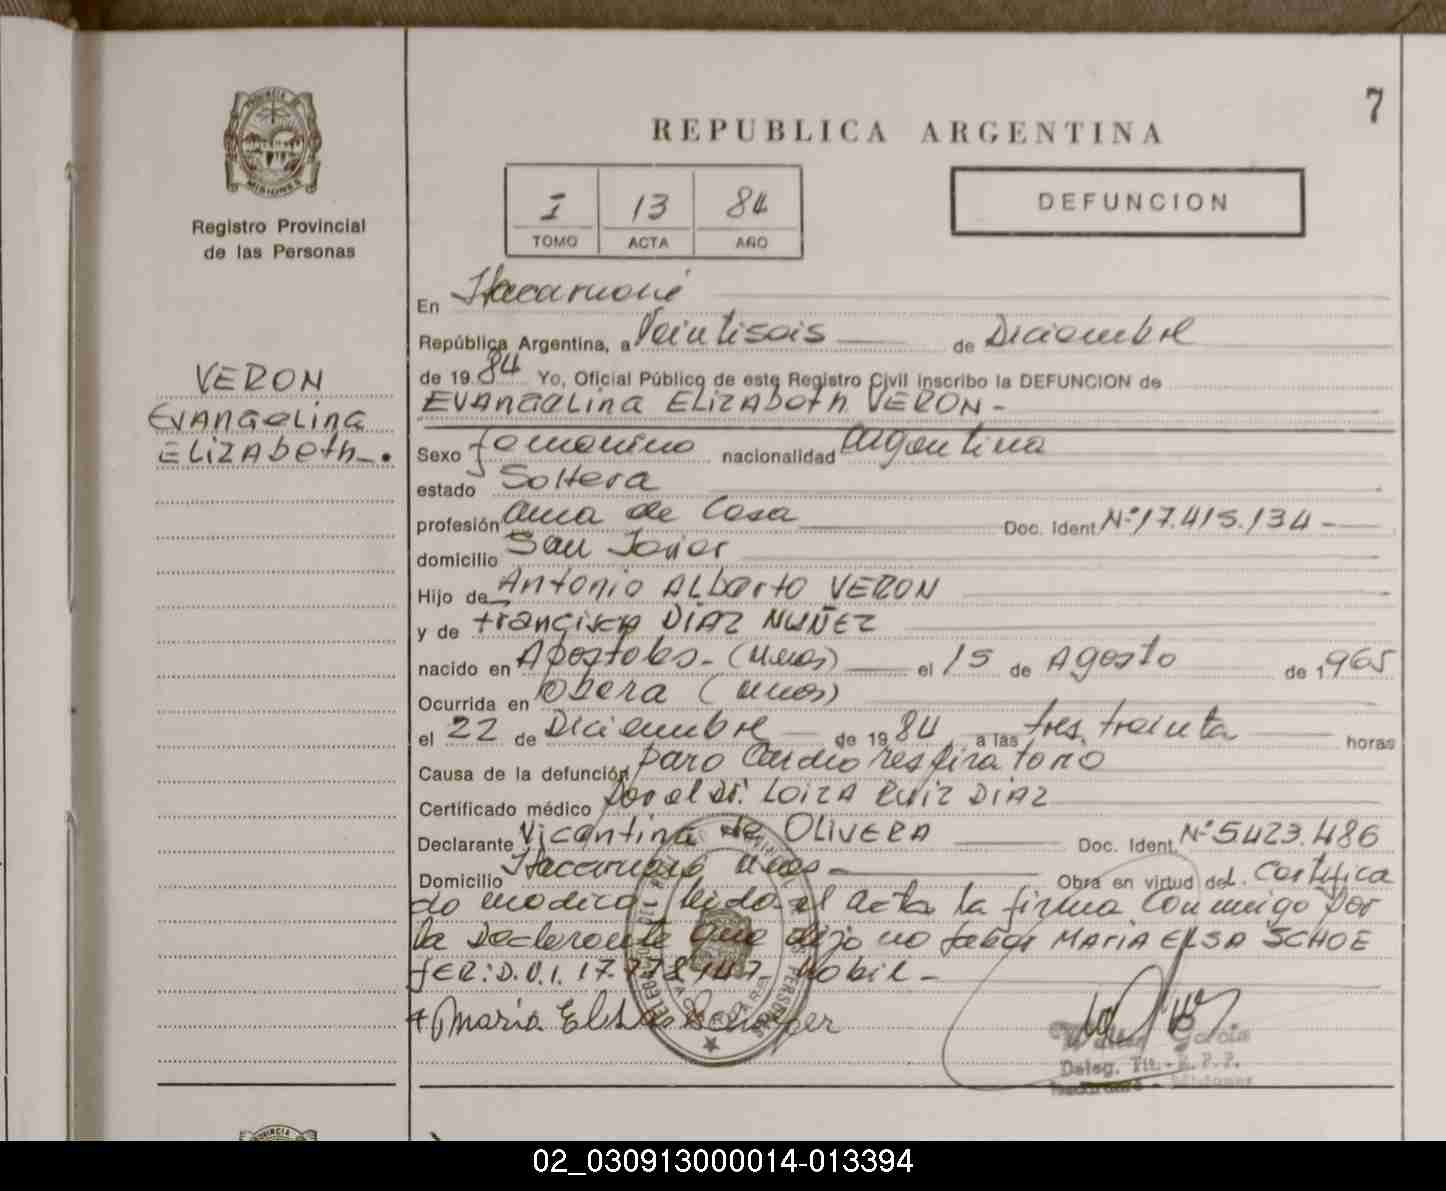 7
PROVINCIA DE
MISIONES
REPUBLICA ARGENTINA
I 13 84
TOMO ACTA AÑO
DEFUNCION
Registro Provincial
de las Personas
VERON
EVANGELINA
ELIZAbeth-.
En Itacaruaré
República Argentina, a Veintiseis de Diciembre
de 19 84 Yo, Oficial Público de este Registro Civil inscribo la DEFUNCION de
EVANGELINA ELIZAbeth VERON -
Sexo femenino nacionalidad Argentina
estado Soltera
profesión Ama de Casa Doc. Ident. Nº 17.415.134 -
domicilio San Javier
Hijo de Antonio ALberto VERON
y de francisca DIAZ NUÑEZ
nacido en Apostoles - (Mnes) el 15 de Agosto de 1965
Ocurrida en Obera (Mnes)
el 22 de Diciembre de 19 84 a las tres, treinta horas
Causa de la defunción paro Cardio respiratorio
Certificado médico por el Dr. LOIZA RUIZ DIAZ
Declarante Vicentina de OLIVERA Doc. Ident. Nº 5423.486
Domicilio Itacaruaré Mnes - Obra en virtud del Certifica
do medico - leida el acta la firma Conmigo por
la Declarante que dijo no saber MARIA ELSA SCHOE
fER: D.N.I. 17.778.147 - Habil -
Maria Elsa
Garcia
Deleg. Tit. - R.P.P.
Itacaruaré - Misiones
02_030913000014-013394